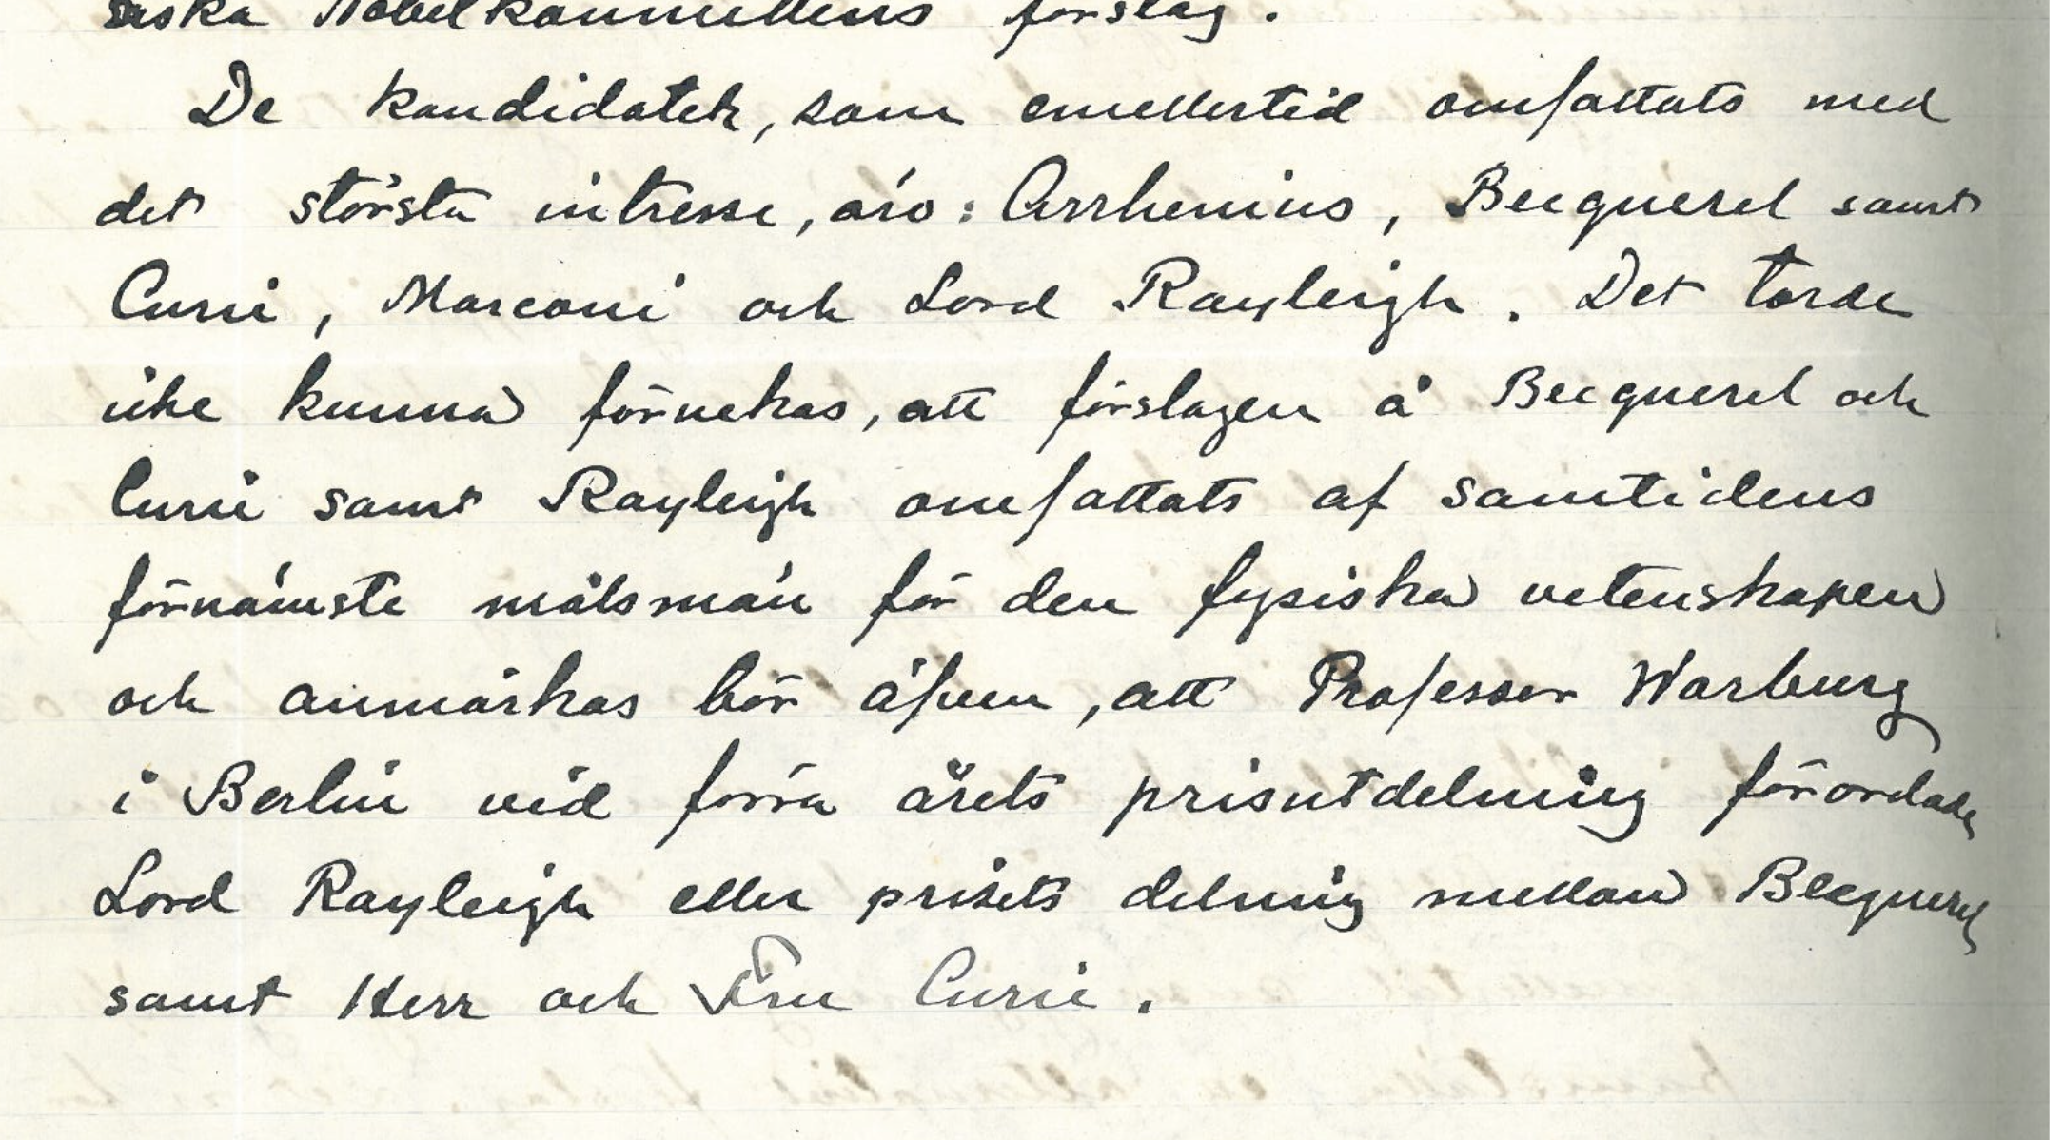 siska Nobelkommitténs förslag.
De kandidater, som emellertid omfattats med
det största intresse, äro: Arrhenius, Becquerel samt
Curie, Marconi och Lord Rayleigh. Det torde
icke kunna förnekas, att förslagen å Becquerel och
Curie samt Rayleigh omfattats af samtidens
förnämste målsmän för den fysiska vetenskapen
och anmärkas bör äfven, att Professor Warburg
i Berlin vid förra årets prisutdelning förordade
Lord Rayleigh eller prisets delning mellan Becquerel
samt Herr och Fru Curie.